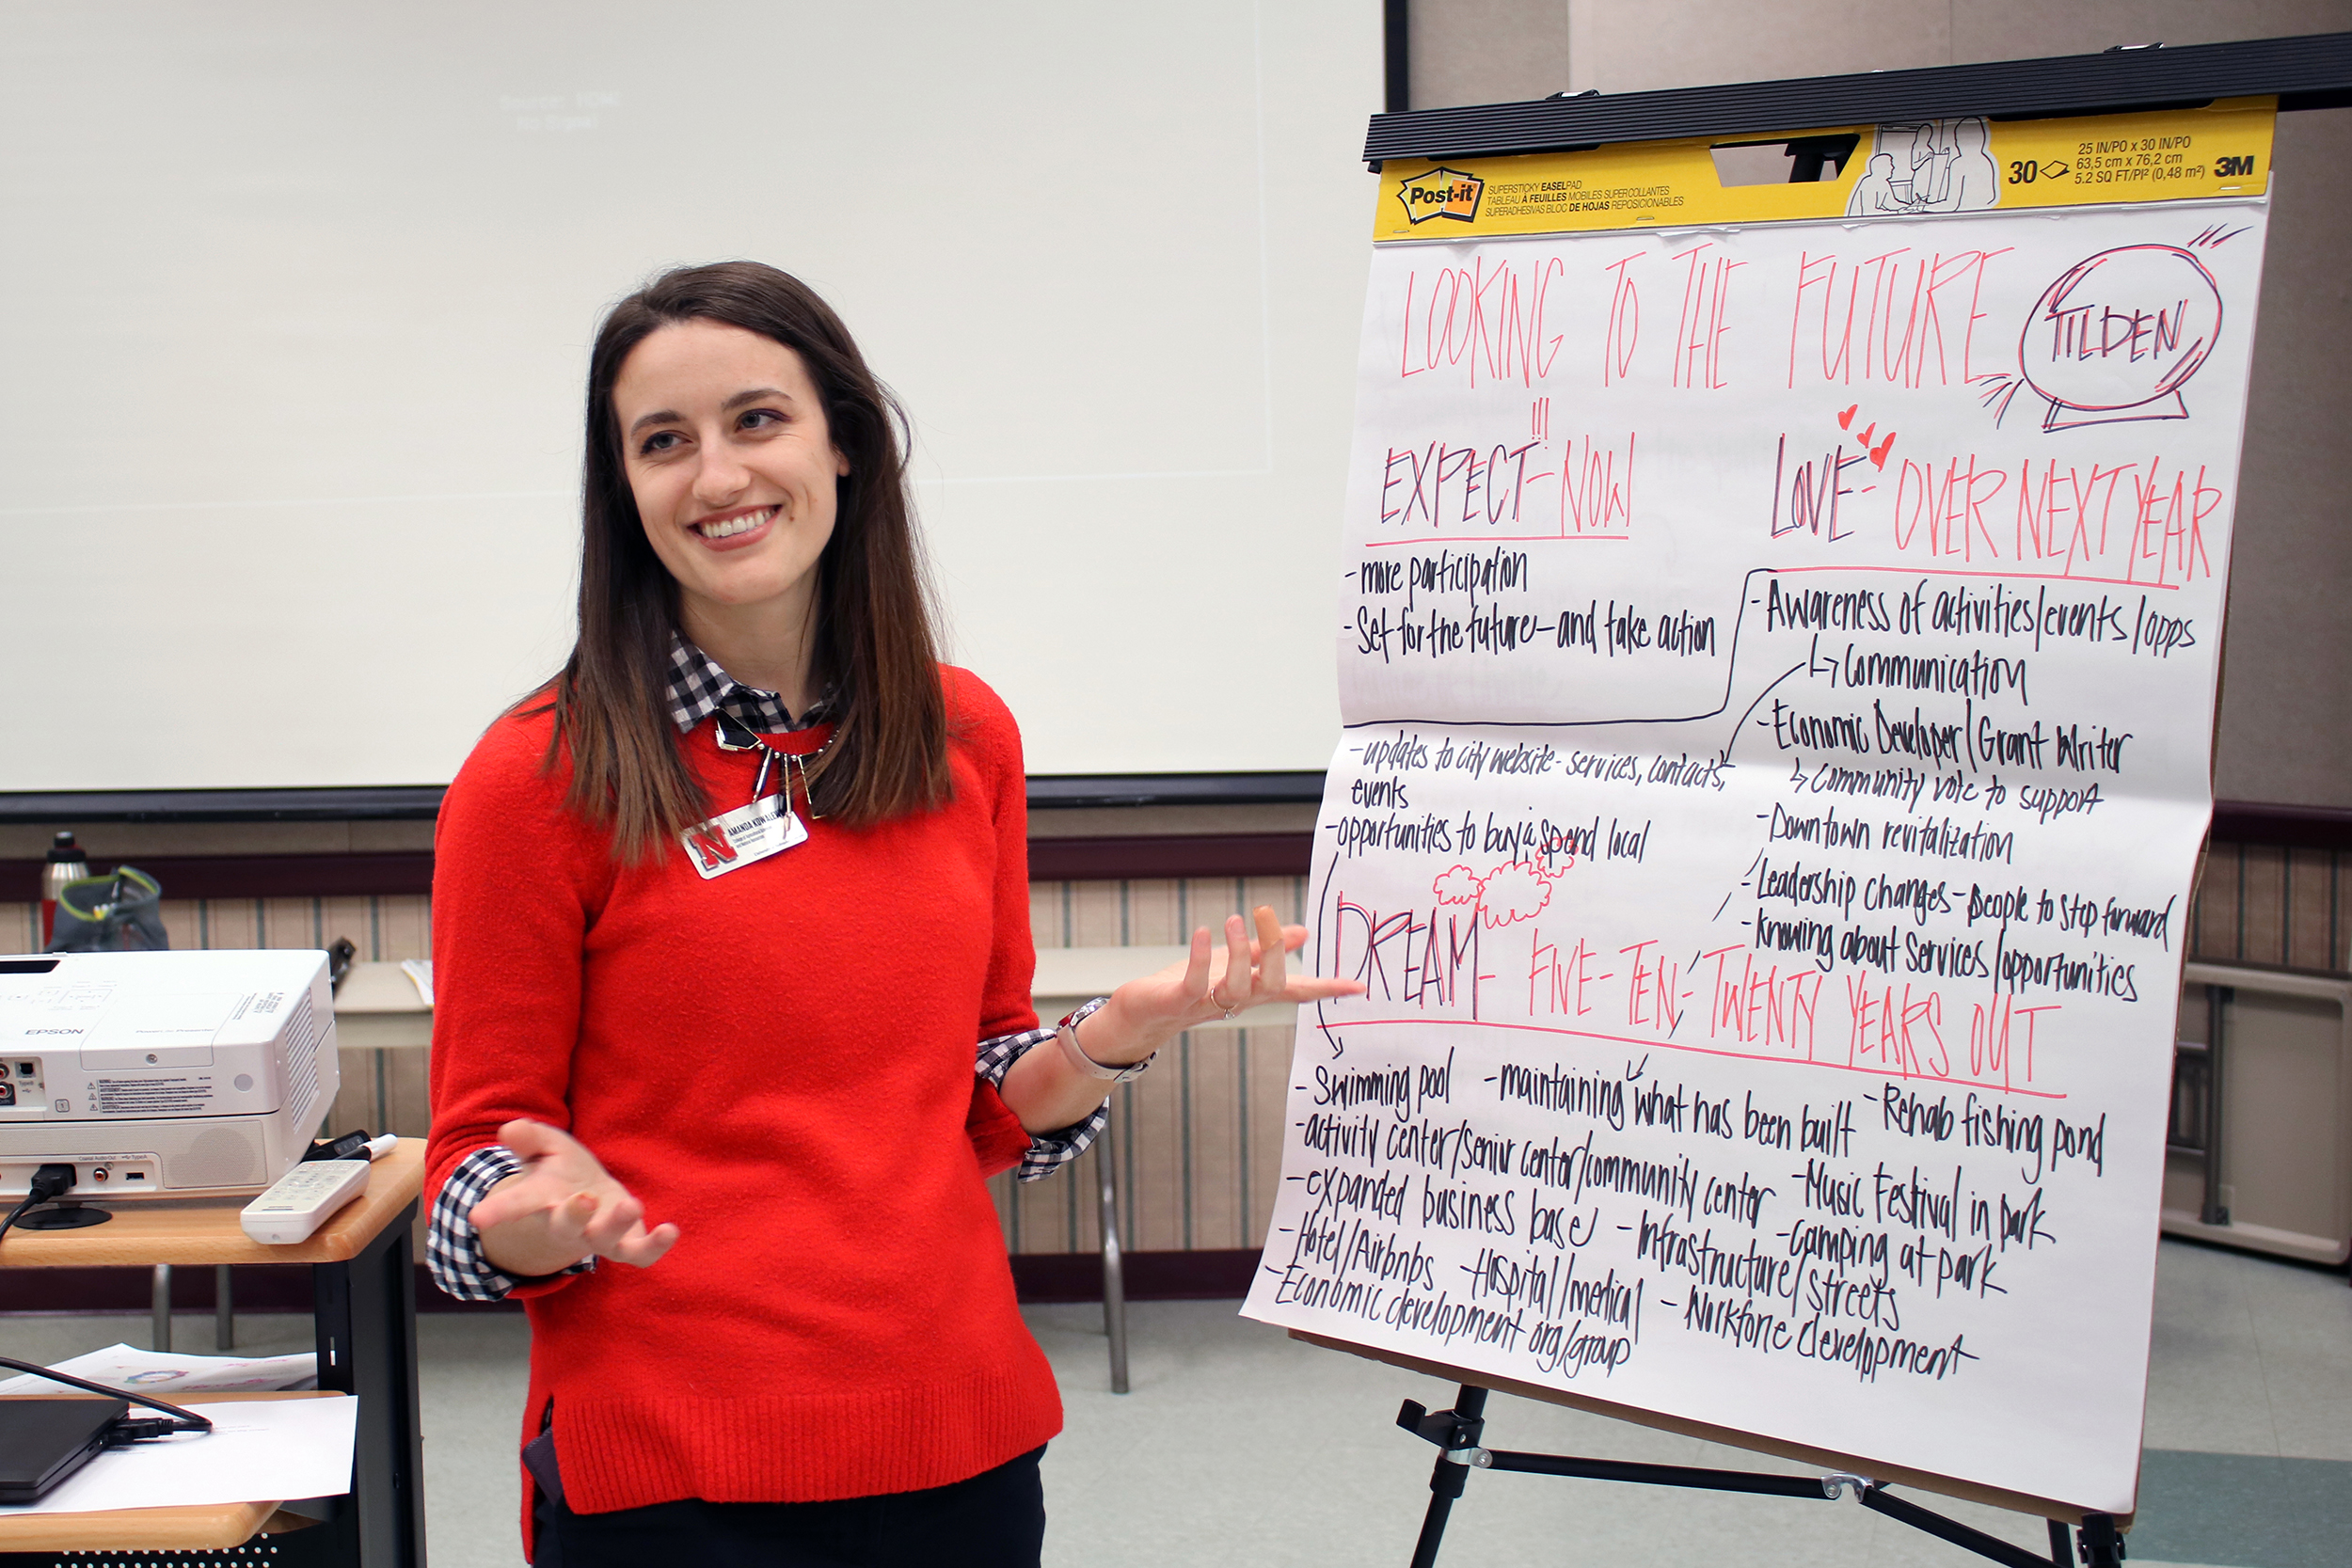 Source: HDMI
No Signal
Post-it
SUPERSTICKY EASEL PAD
TABLEAU À FEUILLES MOBILES SUPERCOLLANTES
SUPERADHESIVAS BLOC DE HOJAS REPOSICIONABLES
30
25 IN/PO x 30 IN/PO
63,5 cm x 76,2 cm
5.2 SQ FT/PI² (0,48 m²)
3M
LOOKING TO THE FUTURE
TILDEN
EXPECT!!! - NOW
- more participation
- Set for the future - and take action
LOVE - OVER NEXT YEAR
- Awareness of activities/events/opps
↳ Communication
- Economic Developer/Grant Writer
↳ Community vote to support
- Downtown revitalization
- Leadership changes - people to step forward
- Knowing about services/opportunities
- updates to city website - services, contacts,
events
- opportunities to buy & spend local
DREAM - FIVE - TEN - TWENTY YEARS OUT
- Swimming pool - maintaining what has been built - Rehab fishing pond
- activity center/senior center/community center - Music Festival in park
- expanded business base - Infrastructure/streets - camping at park
- Hotel/Airbnbs - Hospital/medical - Workforce development
- Economic development org/group
N
AMANDA
EPSON